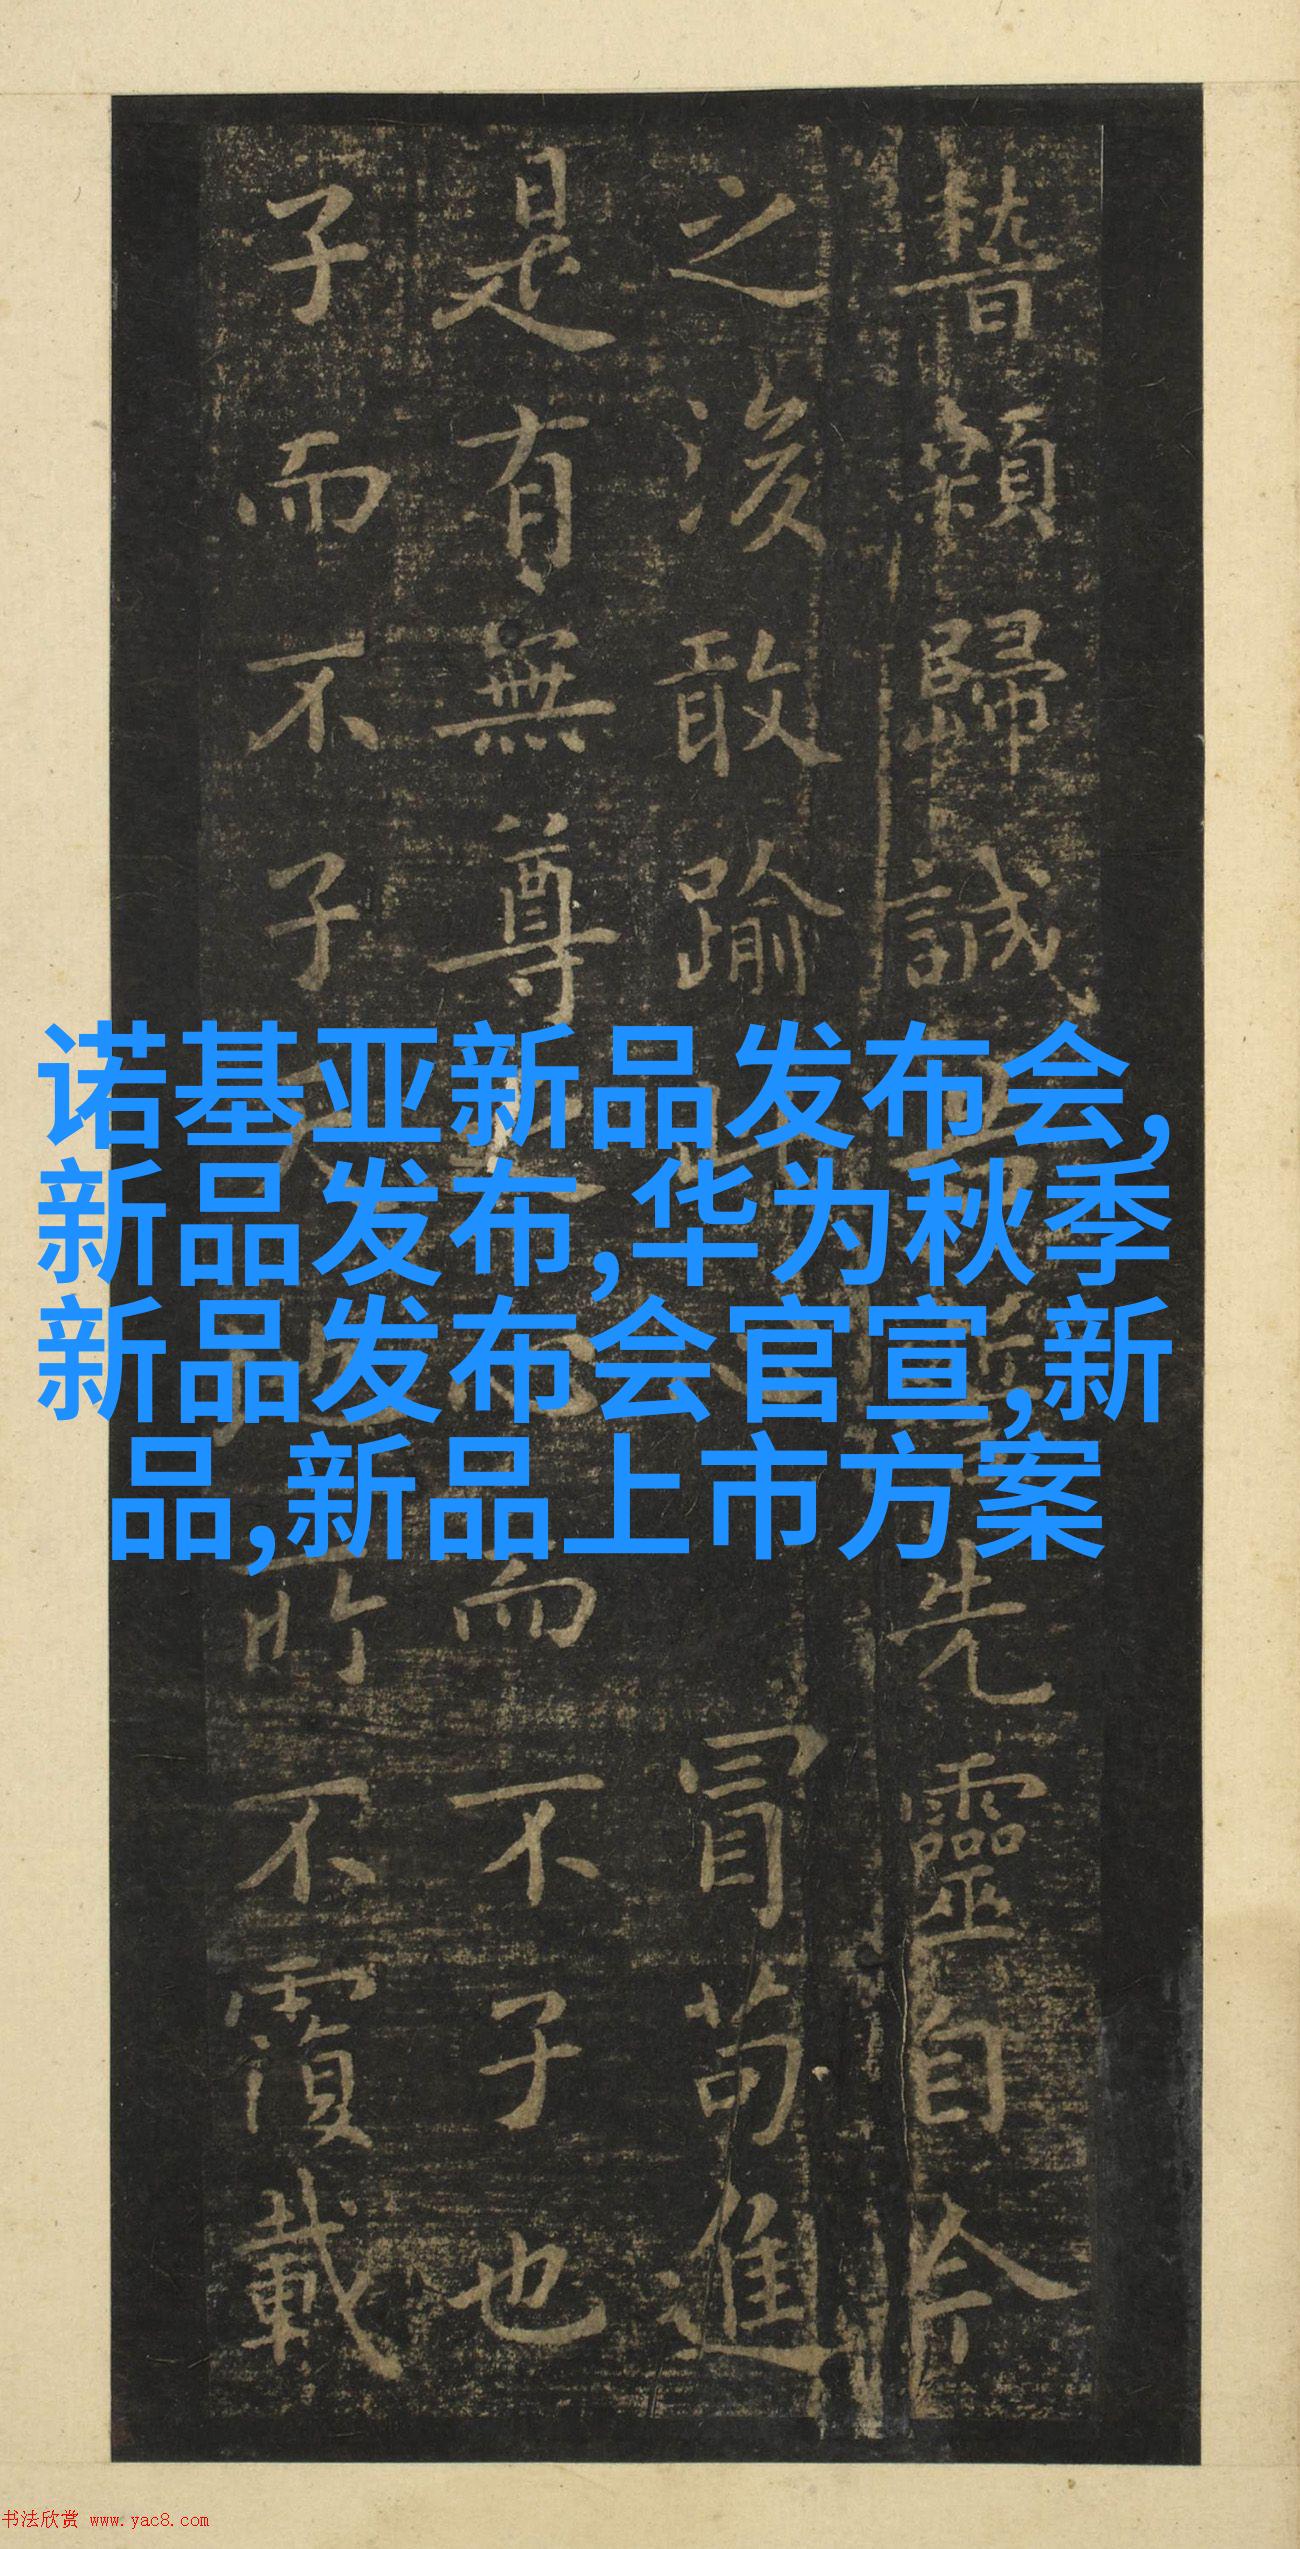 稽顙歸誠先靈自今
之後敢踰冒苟進
是有無尊而不子也
子而不子所不覆載
诺基亚新品发布会,
新品发布,华为秋季
新品发布会官宣,新
品,新品上市方案
书法欣赏 www.yac8.com